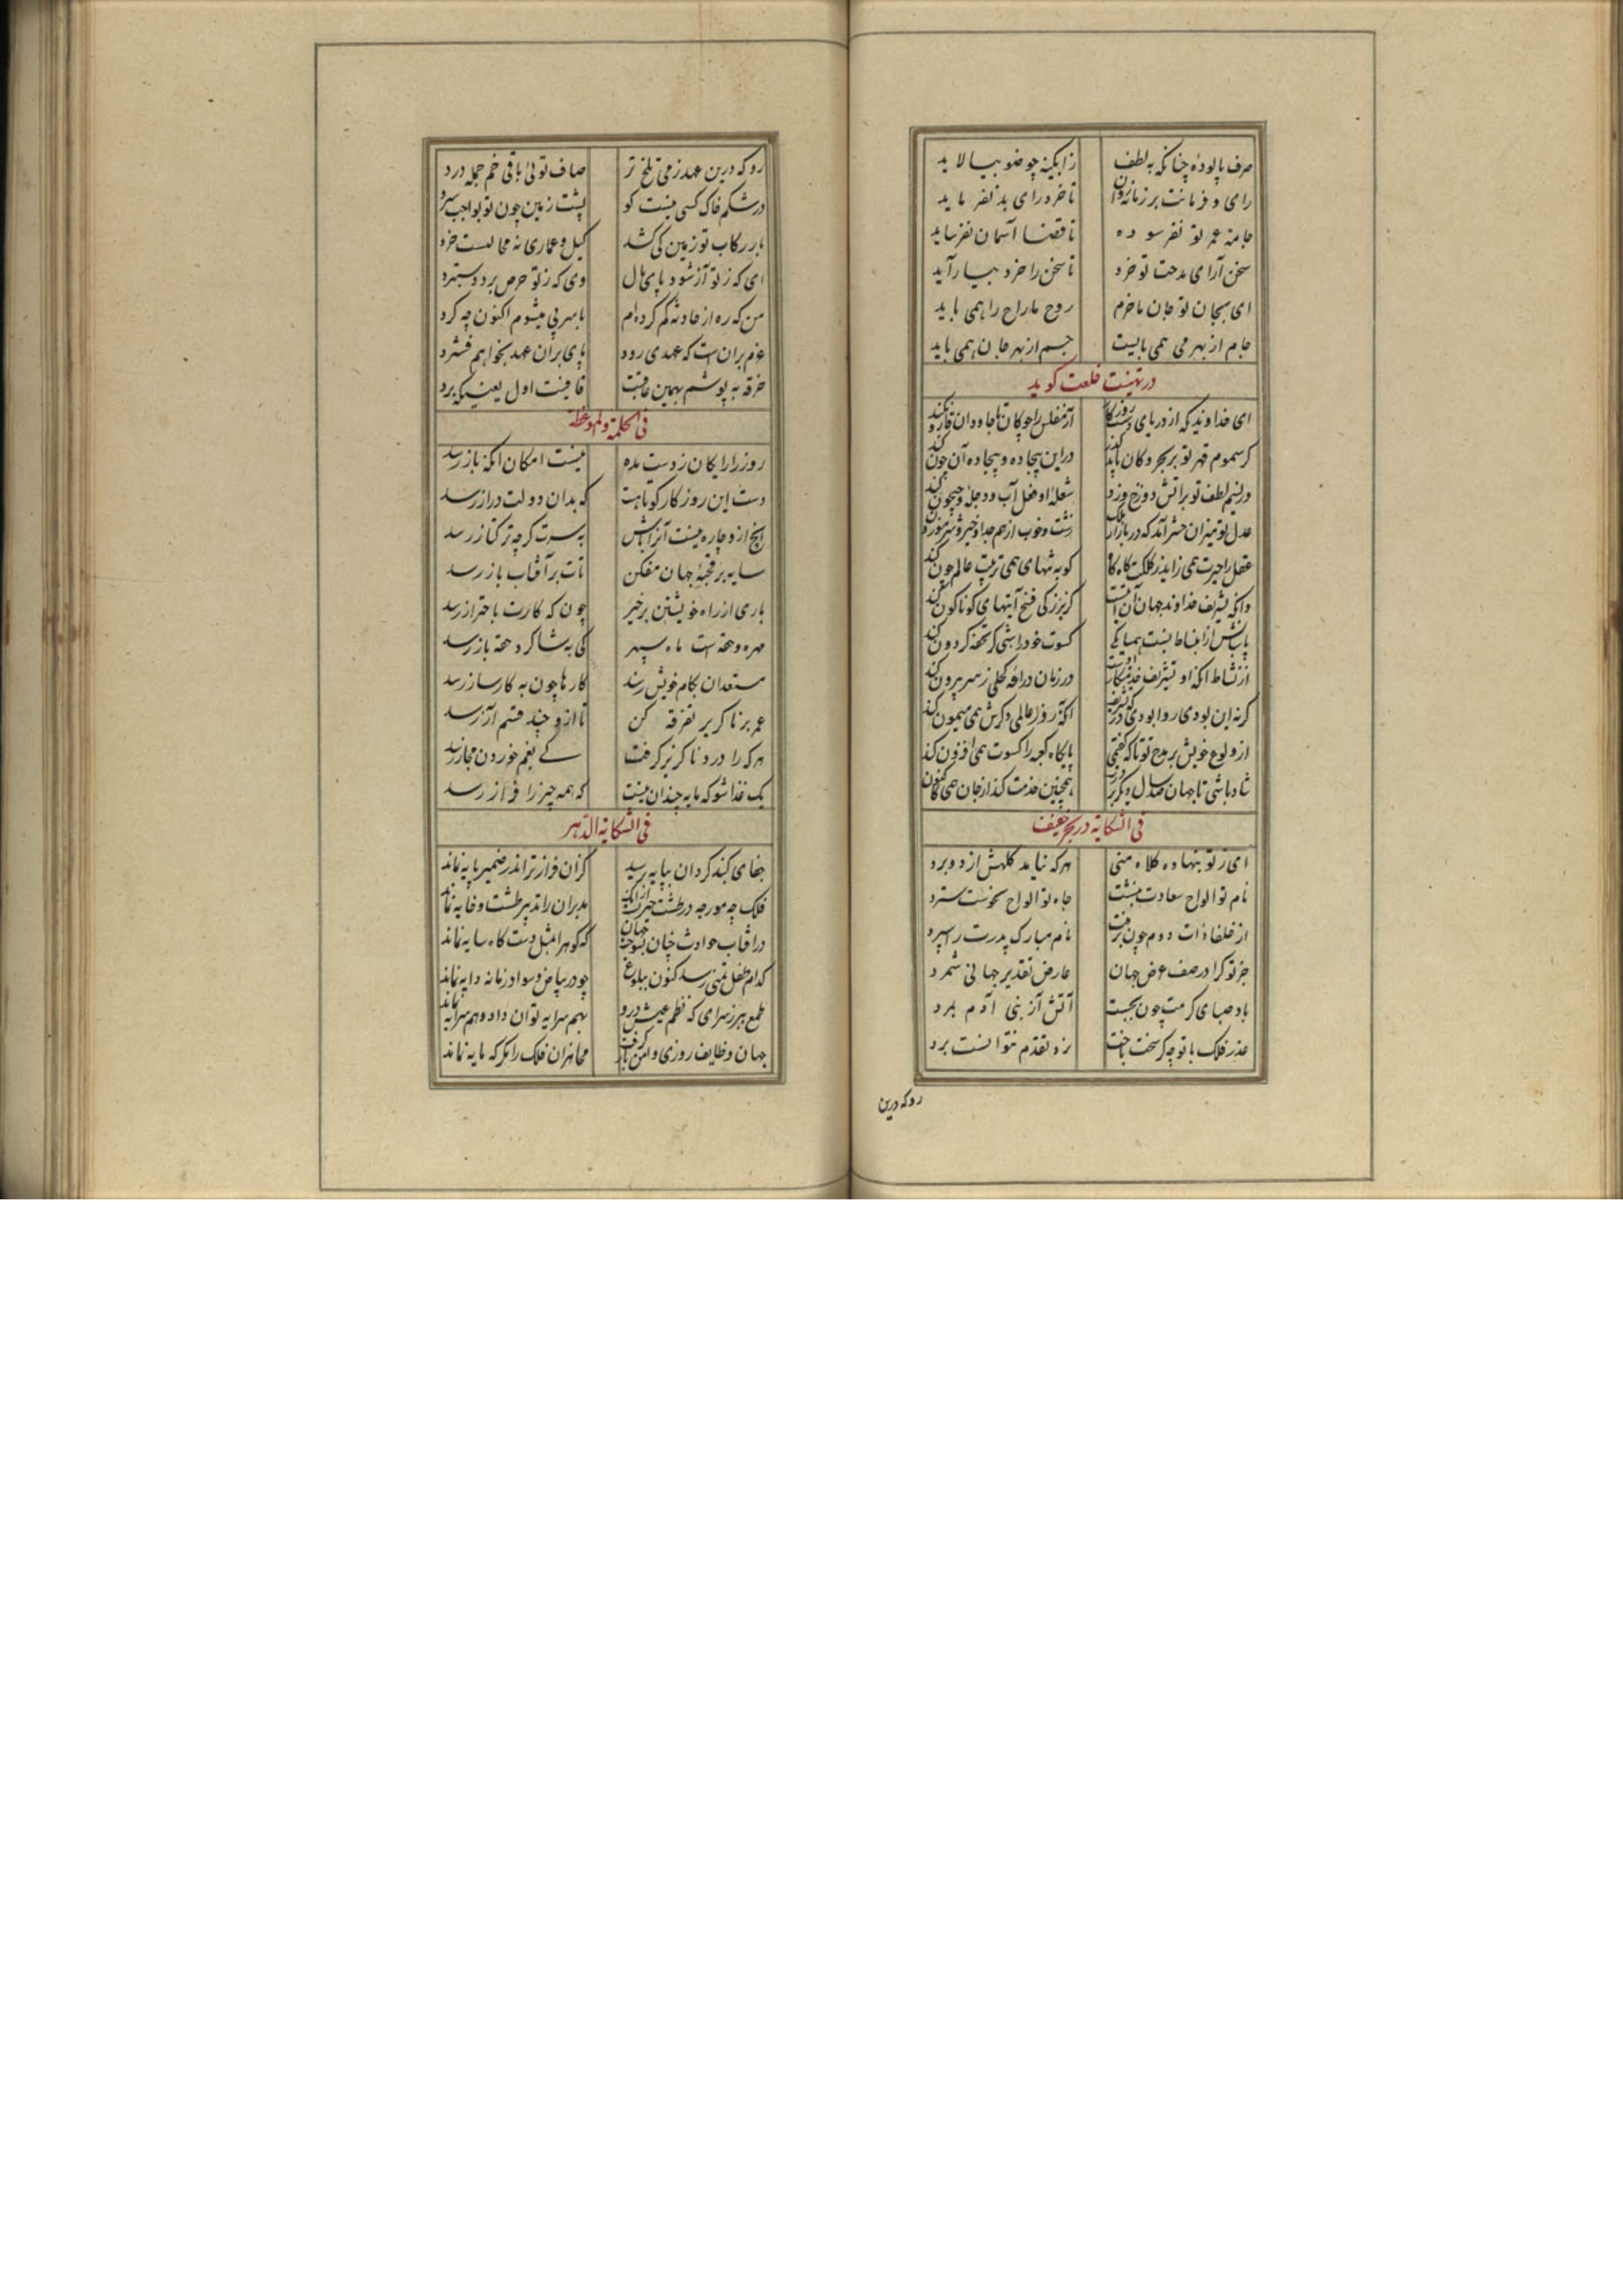 صرف پالوده چنانکه به لطف زابگینه چو ضو بیالاید
رای و فرمانت بر زمانه روان تا خرد رای بد نفرماید
جامه عمر تو نفرسوده تا قضا آسمان نفرساید
سخن آرای مدحت تو خرد تا سخن را خرد بیاراید
ای بجان تو جان ما خرم روح ما راح را همی باید
جام از بهر می همی بایست جسم از بهر جان همی باید
در تهنیت خلعت گوید
ای خداوندیکه از دریای دستت روزگار آز مفلس را چو کان تا جاودان قارون کند
گر سموم قهر تو بر بحر و کان یابد گذر در این بیجاده و بیجاده آن خون کند
ور نسیم لطف تو بر آتش دوزخ وزد شعلهٔ او فعل آب دجله و جیحون کند
عدل تو میزان حشر آمد که در بازار ملک زشت و خوب از هم جدا و خیر و شر موزون کند
عقل را حیرت همی زاید ز کلکت گاه گاه کو به تنهای همی ترتیب عالم چون کند
وانکه تشریف خداوند جهان آن آیتست کز بزرگی فتح آیتهای گوناگون کند
پایش از انبساط نیست همپایکی کسوت خود را شبی گر تحفه گردون کند
از نشاط آنکه او تشریف خدمتکار اوست در زمان دراعه کحلی ز سر بیرون کند
گر نه این بودی روا بودی که تشریفت آنکه روز عالمی ذکرش همی میمون کند
از ولوع خویش بر مدح تو تا که گفتمی پایگاه کعبه را کسوت همی افزون کند
شاد باشی تا جهان صد سال دیگر بر درت همچنین خدمت کند از جان همی کاکنون کند
فی الشکایة در بحر خفیف
ای ز تو بنهاده کلاه منی هرکه نیامد کلهش از دو برد
نام تو الواح سعادت نبشت جاه تو الواح نحوست سترد
از خلفا ذات دوم چون برفت نام مبارک پدرت را سپرد
جز تو کرا در صف عرض جهان عارض تقدیر جهانی شمرد
باد صبای کرمت چون بجست آتش آز بنی آدم بمرد
عذر فلک با تو چه گر سخت باخت نرد تقدم نتوانست برد
رو که درین
رو که درین عهد ز می تلخ تر صاف توئی باقی خم جمله درد
در شکم خاک کسی نیست کو پشت زمین چون تو بواجب سپرد
بار رکاب تو زمین کی کشد کیل و عماری نه محالست خرد
ای که ز تو آز شود پای مال وی که ز تو حرص برد دستبرد
من که ره از حادثه گم کرده‌ام با سر پی میشوم اکنون چه کرد
عزم بر آن است که عهدی رود پای بر آن عهد بخواهم فشرد
خرقه به پوشم بهمین عافیت قافیت اول یعنی که برد
فی الحکمة و الموعظة
روز را رایکان ز دست مده نیست امکان آنکه باز رسد
دست این روزگار کوتاهست که بدان دولت دراز رسد
آنچ ازو چاره نیست آنرا باش به سرت گرچه ترکتاز رسد
سایه بر قحبهٔ جهان مفکن تات بر آفتاب باز رسد
باری از راه خویشتن برخیز چون که کارت با حتراز رسد
مهره و حقه است ماه سپهر کی به شاگرد حقه باز رسد
مستعدان بکام خویش رسند کارها چون به کارساز رسد
عمر بر ناگزیر تفرقه کن تا ازو چند قسم آز رسد
هرکه را درد ناگزیر گرفت کی بغم خوردن مجاز رسد
یک غذا شو که مایه چندان نیست که همه چیز را فراز رسد
فی الشکایة الدهر
جفای گنبد گردان بپایه رسید کزان فرازتر اندر ضمیر پایه نماند
فلک چه مورچه در طشت حیرت از آنک مدبران را تدبیر طشت و خایه نماند
در آفتاب حوادث چنان بسوخت جهان که کوه را بمثل دستگاه سایه نماند
کدام طفل تمنی رسد کنون ببلوغ چو در بیاض و سواد زمانه دایه نماند
طمع ببر ز سرای که نظم عیش درو بهم سرایه توان داد و هم سرایه نماند
جهان وظایف روزی و امن باز گرفت مجاهزان فلک را مگر که مایه نماند